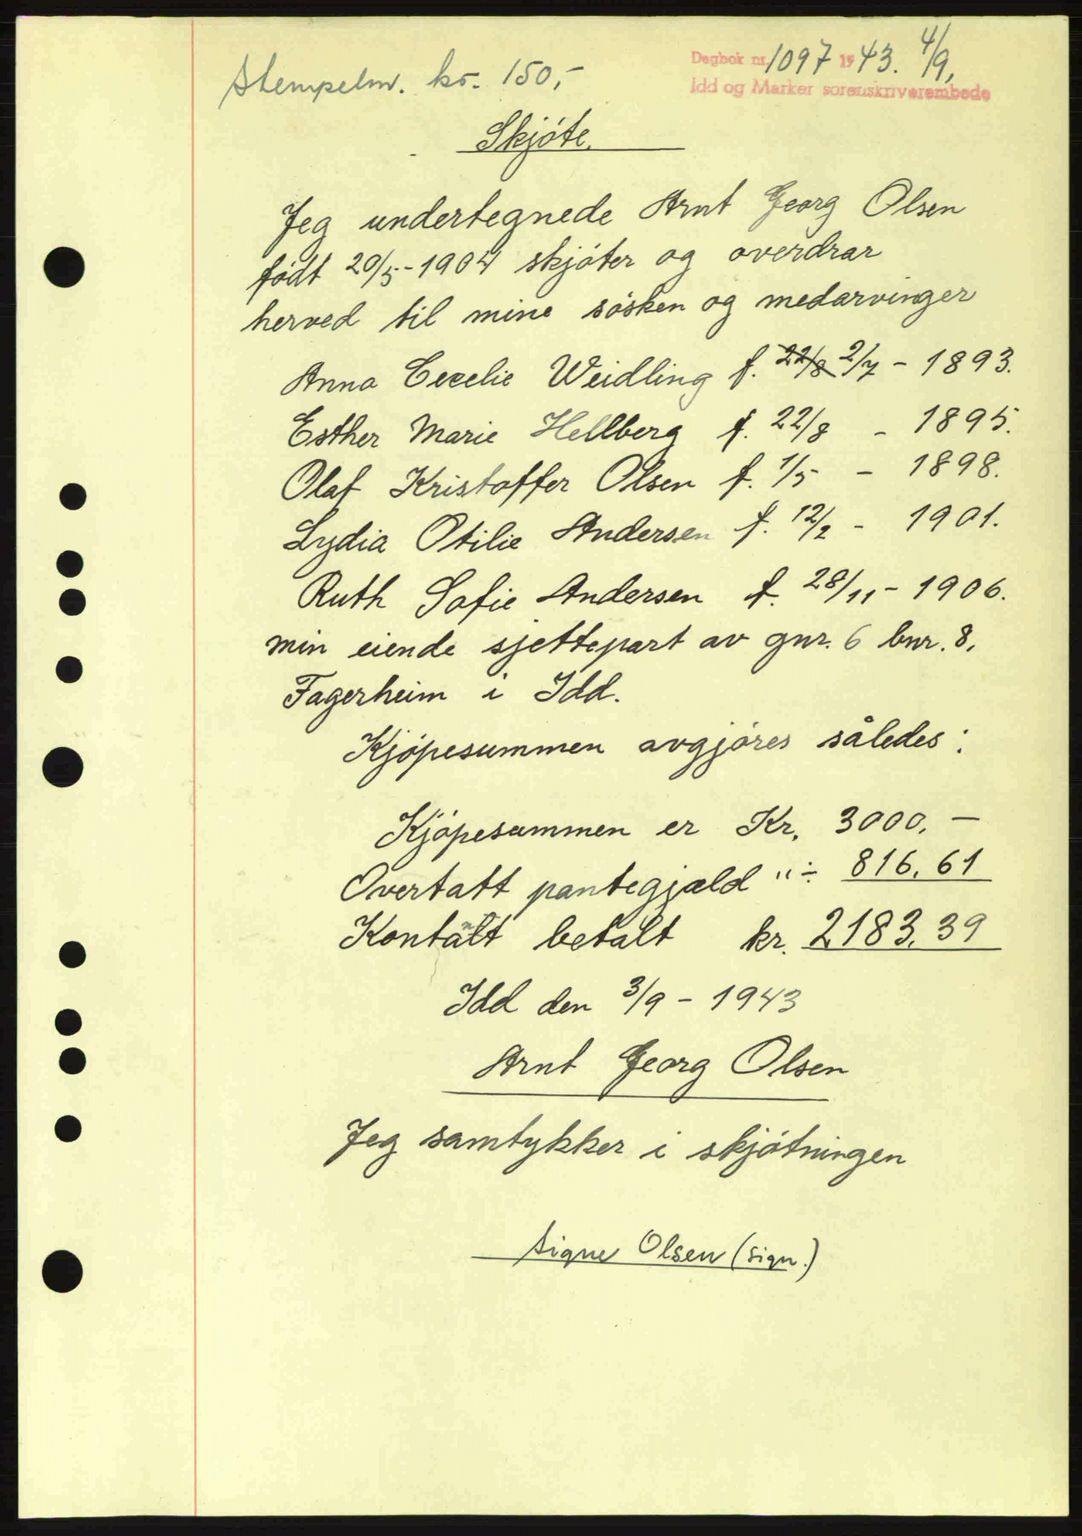 Stempelm. kr. 150,-
Dagbok nr. 1097 1943. 4/9,
Idd og Marker sorenskriverembede
Skjóte.
Jeg undertegnede Arnt Georg Olsen
födt 20/5-1904 skjóter og overdrar
herved til mine sósken og medarvinger
Anna Cecelie Weidling f. 22/8 2/7 - 1893.
Esther Marie Hellberg f. 22/8 - 1895.
Olaf Kristoffer Olsen f. 1/5 - 1898.
Lydia Otilie Andersen f. 12/2 - 1901.
Ruth Sofie Andersen f. 28/11 - 1906.
min eiende sjettepart av gnr. 6 bnr. 8,
Fagerheim i Idd.
Kjópesummen avgjóres således:
Kjópesummen er Kr. 3000. -
Overtatt pantegjæld " ÷ 816.61
Kontant betalt kr. 2183.39
Idd den 3/9 - 1943
Arnt Georg Olsen
Jeg samtykker i skjótningen
Signe Olsen (sign.)